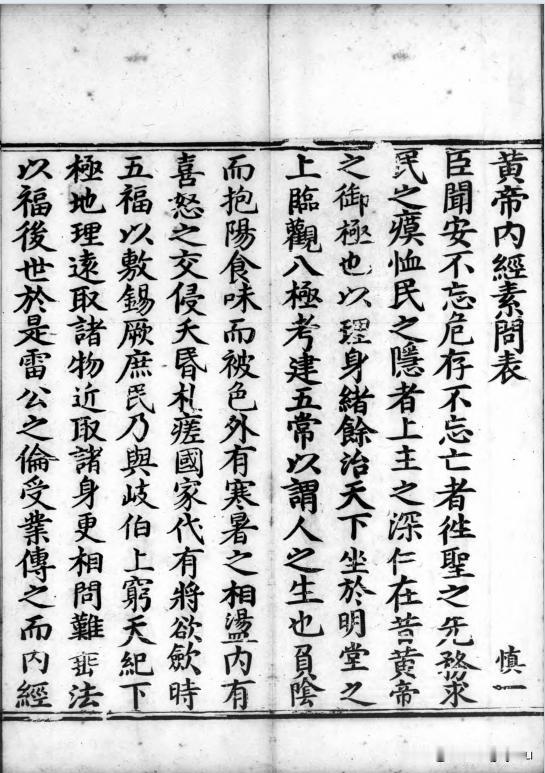 黄帝内經素問表 慎一
臣聞安不忘危存不忘亡者徃聖之先務求
民之瘼恤民之隱者上主之深仁在昔黄帝
之御極也以理身緒餘治天下坐於明堂之
上臨觀八極考建五常以謂人之生也負陰
而抱陽食味而被色外有寒暑之相盪内有
喜怒之交侵夭昬札瘥國家代有將欲歛時
五福以敷錫厥庶民乃與歧伯上窮天紀下
極地理遠取諸物近取諸身更相問難垂法
以福後世於是雷公之倫受業傳之而内經